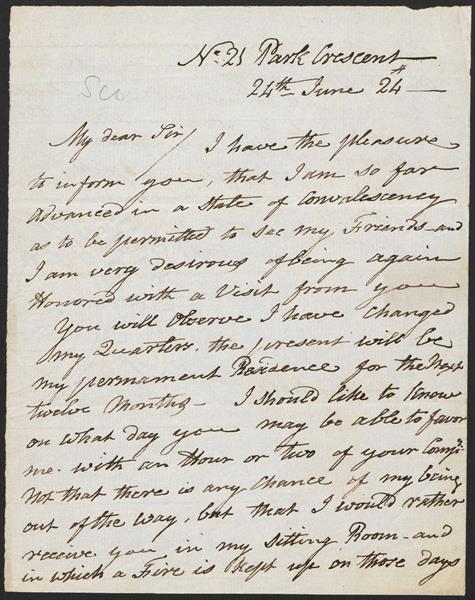 No. 21 Park Crescent
24th June 24
My dear Sir/ I have the pleasure
to inform you, that I am so far
Advanced in a State of Convalescency
as to be permitted to see my Friends and
I am very desirous of being again
Honored with a Visit from you
You will Observe I have changed
my Quarters. the present will be
my permament Residence for the Next
twelve Months - I should like to Know
on what day you may be able to favor
me. with an Hour or two of your Compy.
Not that there is any Chance of my being
out of the way, but that I would rather
receive you in my Sitting Room - and
in which a Fire is Kept up on those days